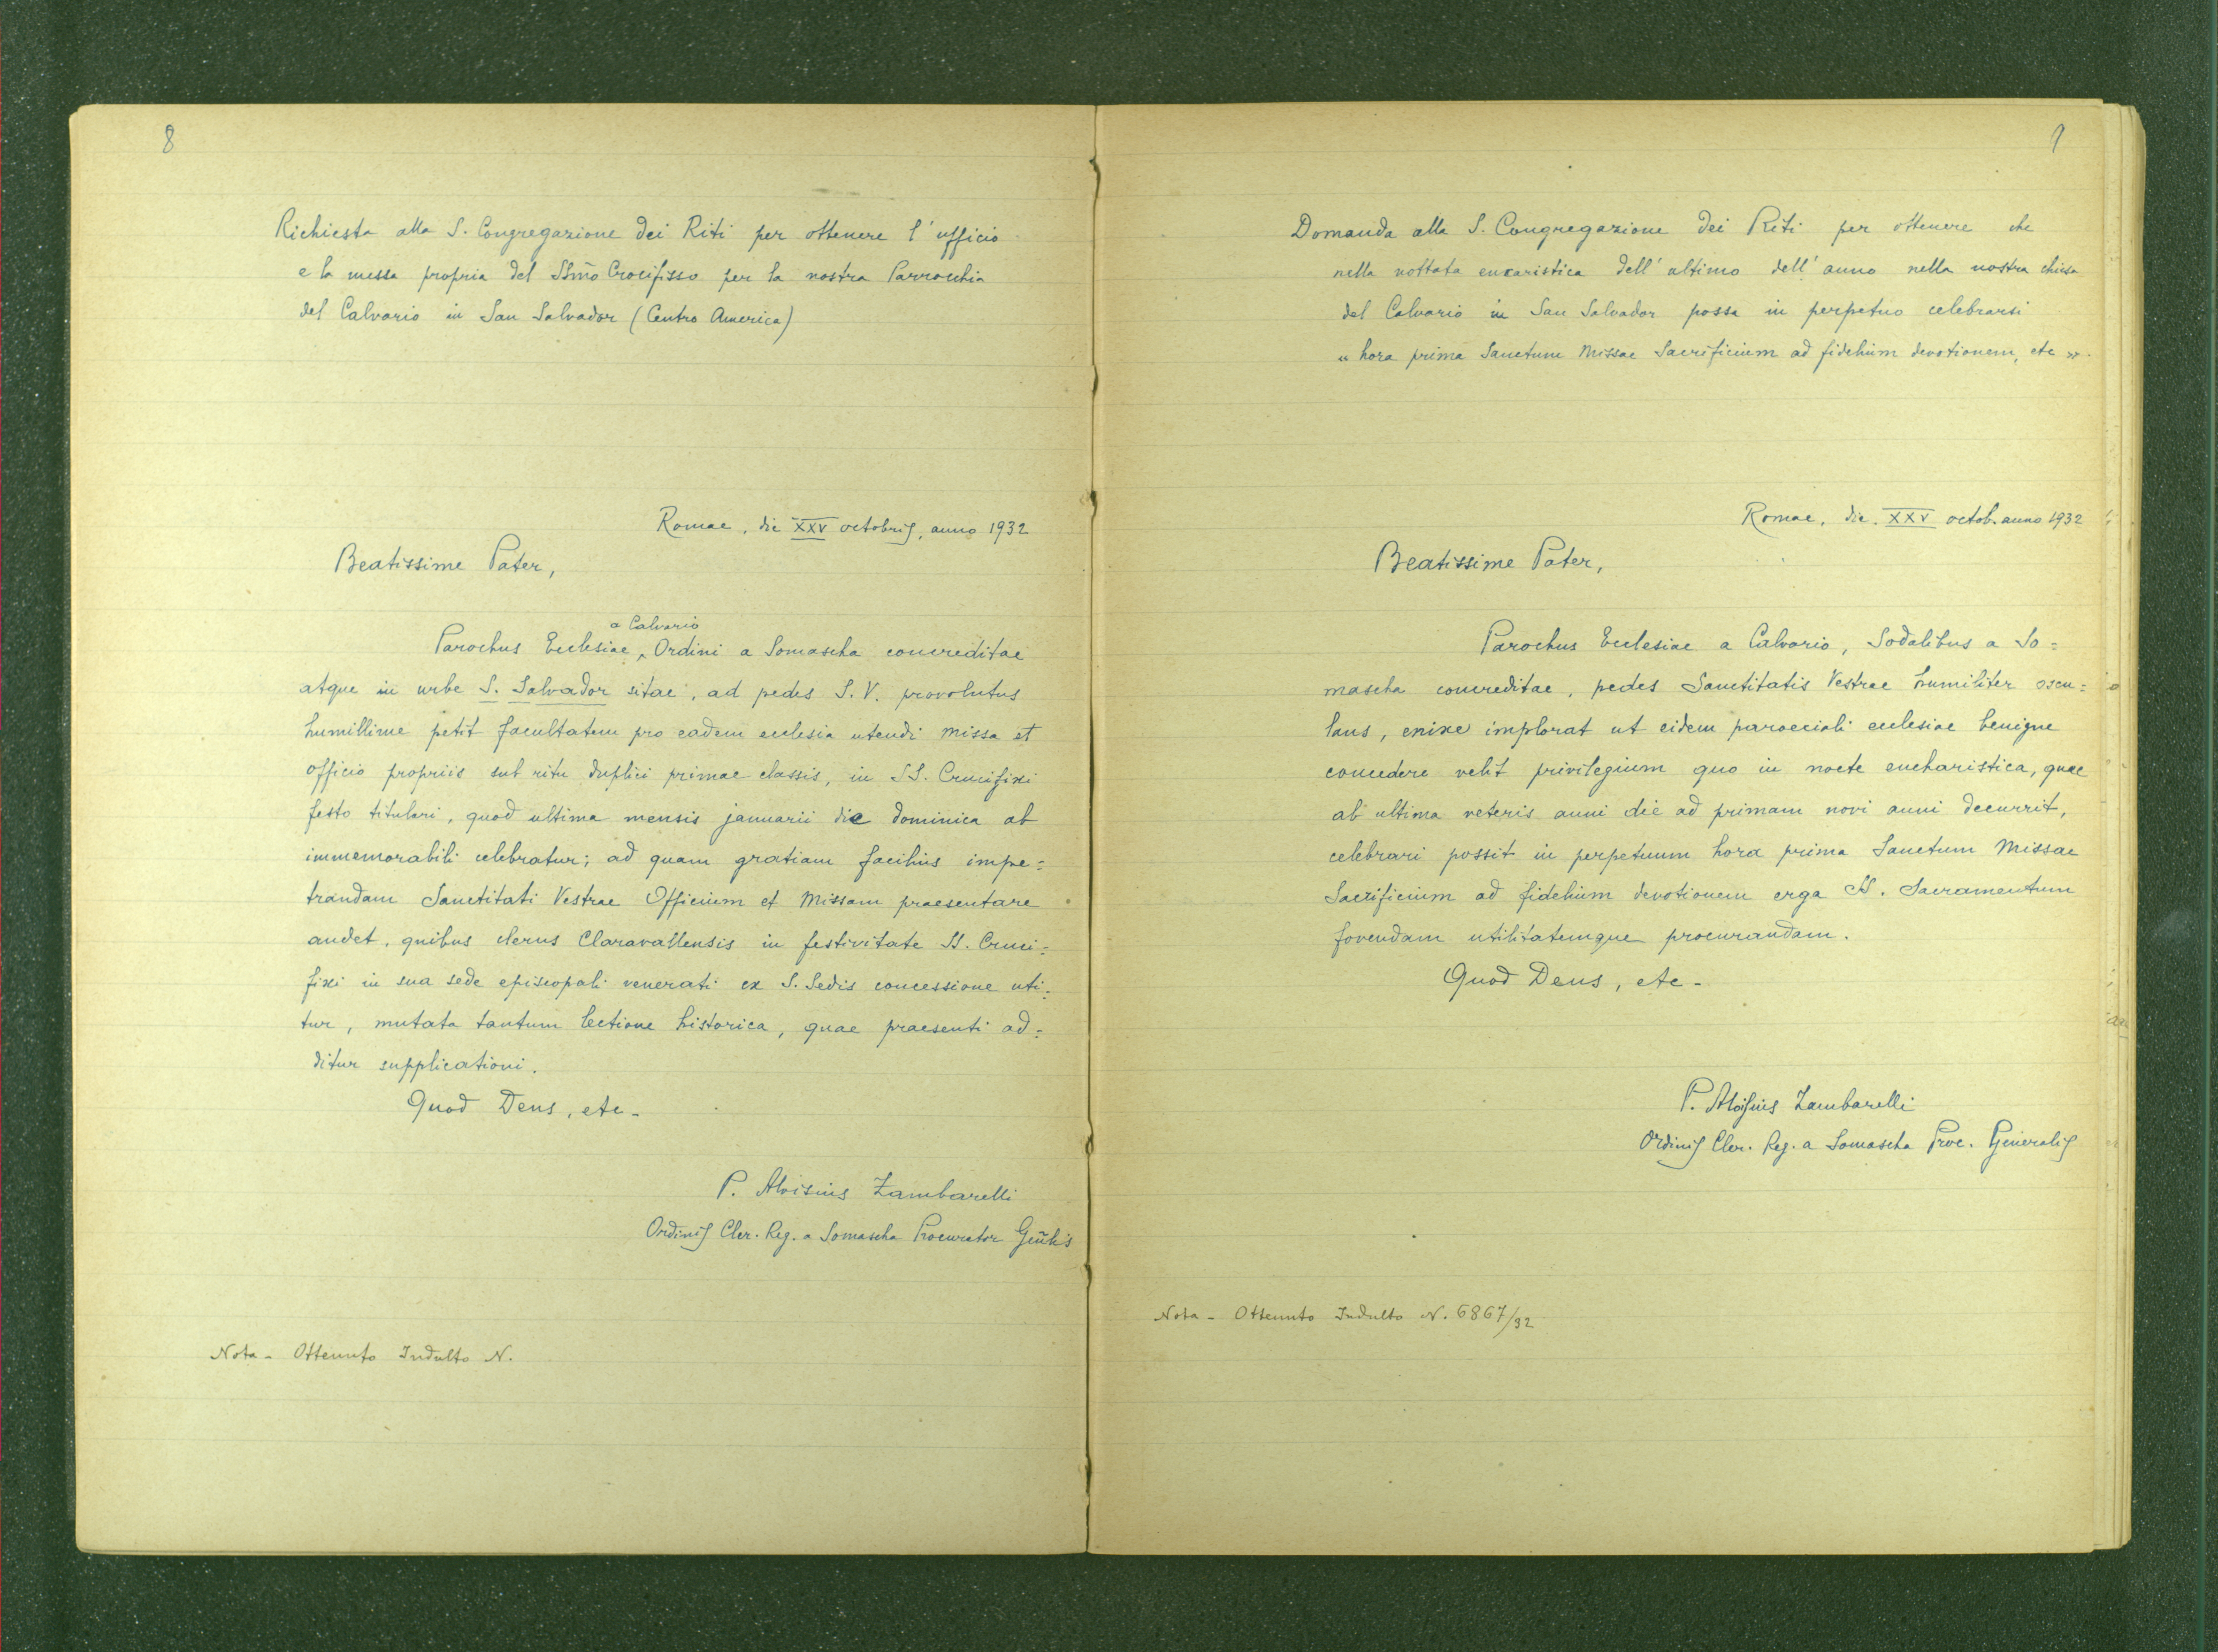 8
Richiesta alla S. Congregazione dei Riti per ottenere l'ufficio
e la messa propria del SSm̃o Crocifisso per la nostra Parrocchia
del Calvario in San Salvador (Centro America)
Romae, die XXV octobris, anno 1932
Beatissime Pater,
a Calvario
Parochus Ecclesiae ‸ Ordini a Somascha concreditae
atque in urbe S. Salvador sitae, ad pedes S. V. provolutus
humillime petit facultatem pro eadem ecclesia utendi missa et
officio propriis sub ritu duplici primae classis, in SS. Crucifixi
festo titulari, quod ultima mensis januarii die dominica ab
immemorabili celebratur; ad quam gratiam facilius impe=
trandam Sanctitati Vestrae Officium et Missam praesentare
audet, quibus clerus Claravallensis in festivitate SS. Cruci=
fixi in sua sede episcopali venerati ex S. Sedis concessione uti=
tur, mutata tantum lectione historica, quae praesenti ad=
ditur supplicationi.
Quod Deus, etc-
P. Aloisius Zambarelli
Ordinis Cler. Reg. a Somascha Procurator Gen̄lis
Nota - Ottenuto Indulto N.
9
Domanda alla S. Congregazione dei Riti per ottenere che
nella nottata eucaristica dell'ultimo dell'anno nella nostra chiesa
del Calvario in San Salvador possa in perpetuo celebrarsi
« hora prima Sanctum Missae Sacrificium ad fidelium devotionem, etc ».
Romae, die XXV octob. anno 1932
Beatissime Pater,
Parochus Ecclesiae a Calvario, Sodalibus a So=
mascha concreditae, pedes Sanctitatis Vestrae humiliter oscu=
lans, enixe implorat ut eidem paroeciali ecclesiae benigne
concedere velit privilegium quo in nocte eucharistica, quae
ab ultima veteris anni die ad primam novi anni decurrit,
celebrari possit in perpetuum hora prima Sanctum Missae
Sacrificium ad fidelium devotionem erga SS. Sacramentum
fovendam utilitatemque procurandam.
Quod Deus, etc-
P. Aloisius Zambarelli
Ordinis Cler. Reg. a Somascha Proc. Generalis
Nota - Ottenuto Indulto N. 6867/32